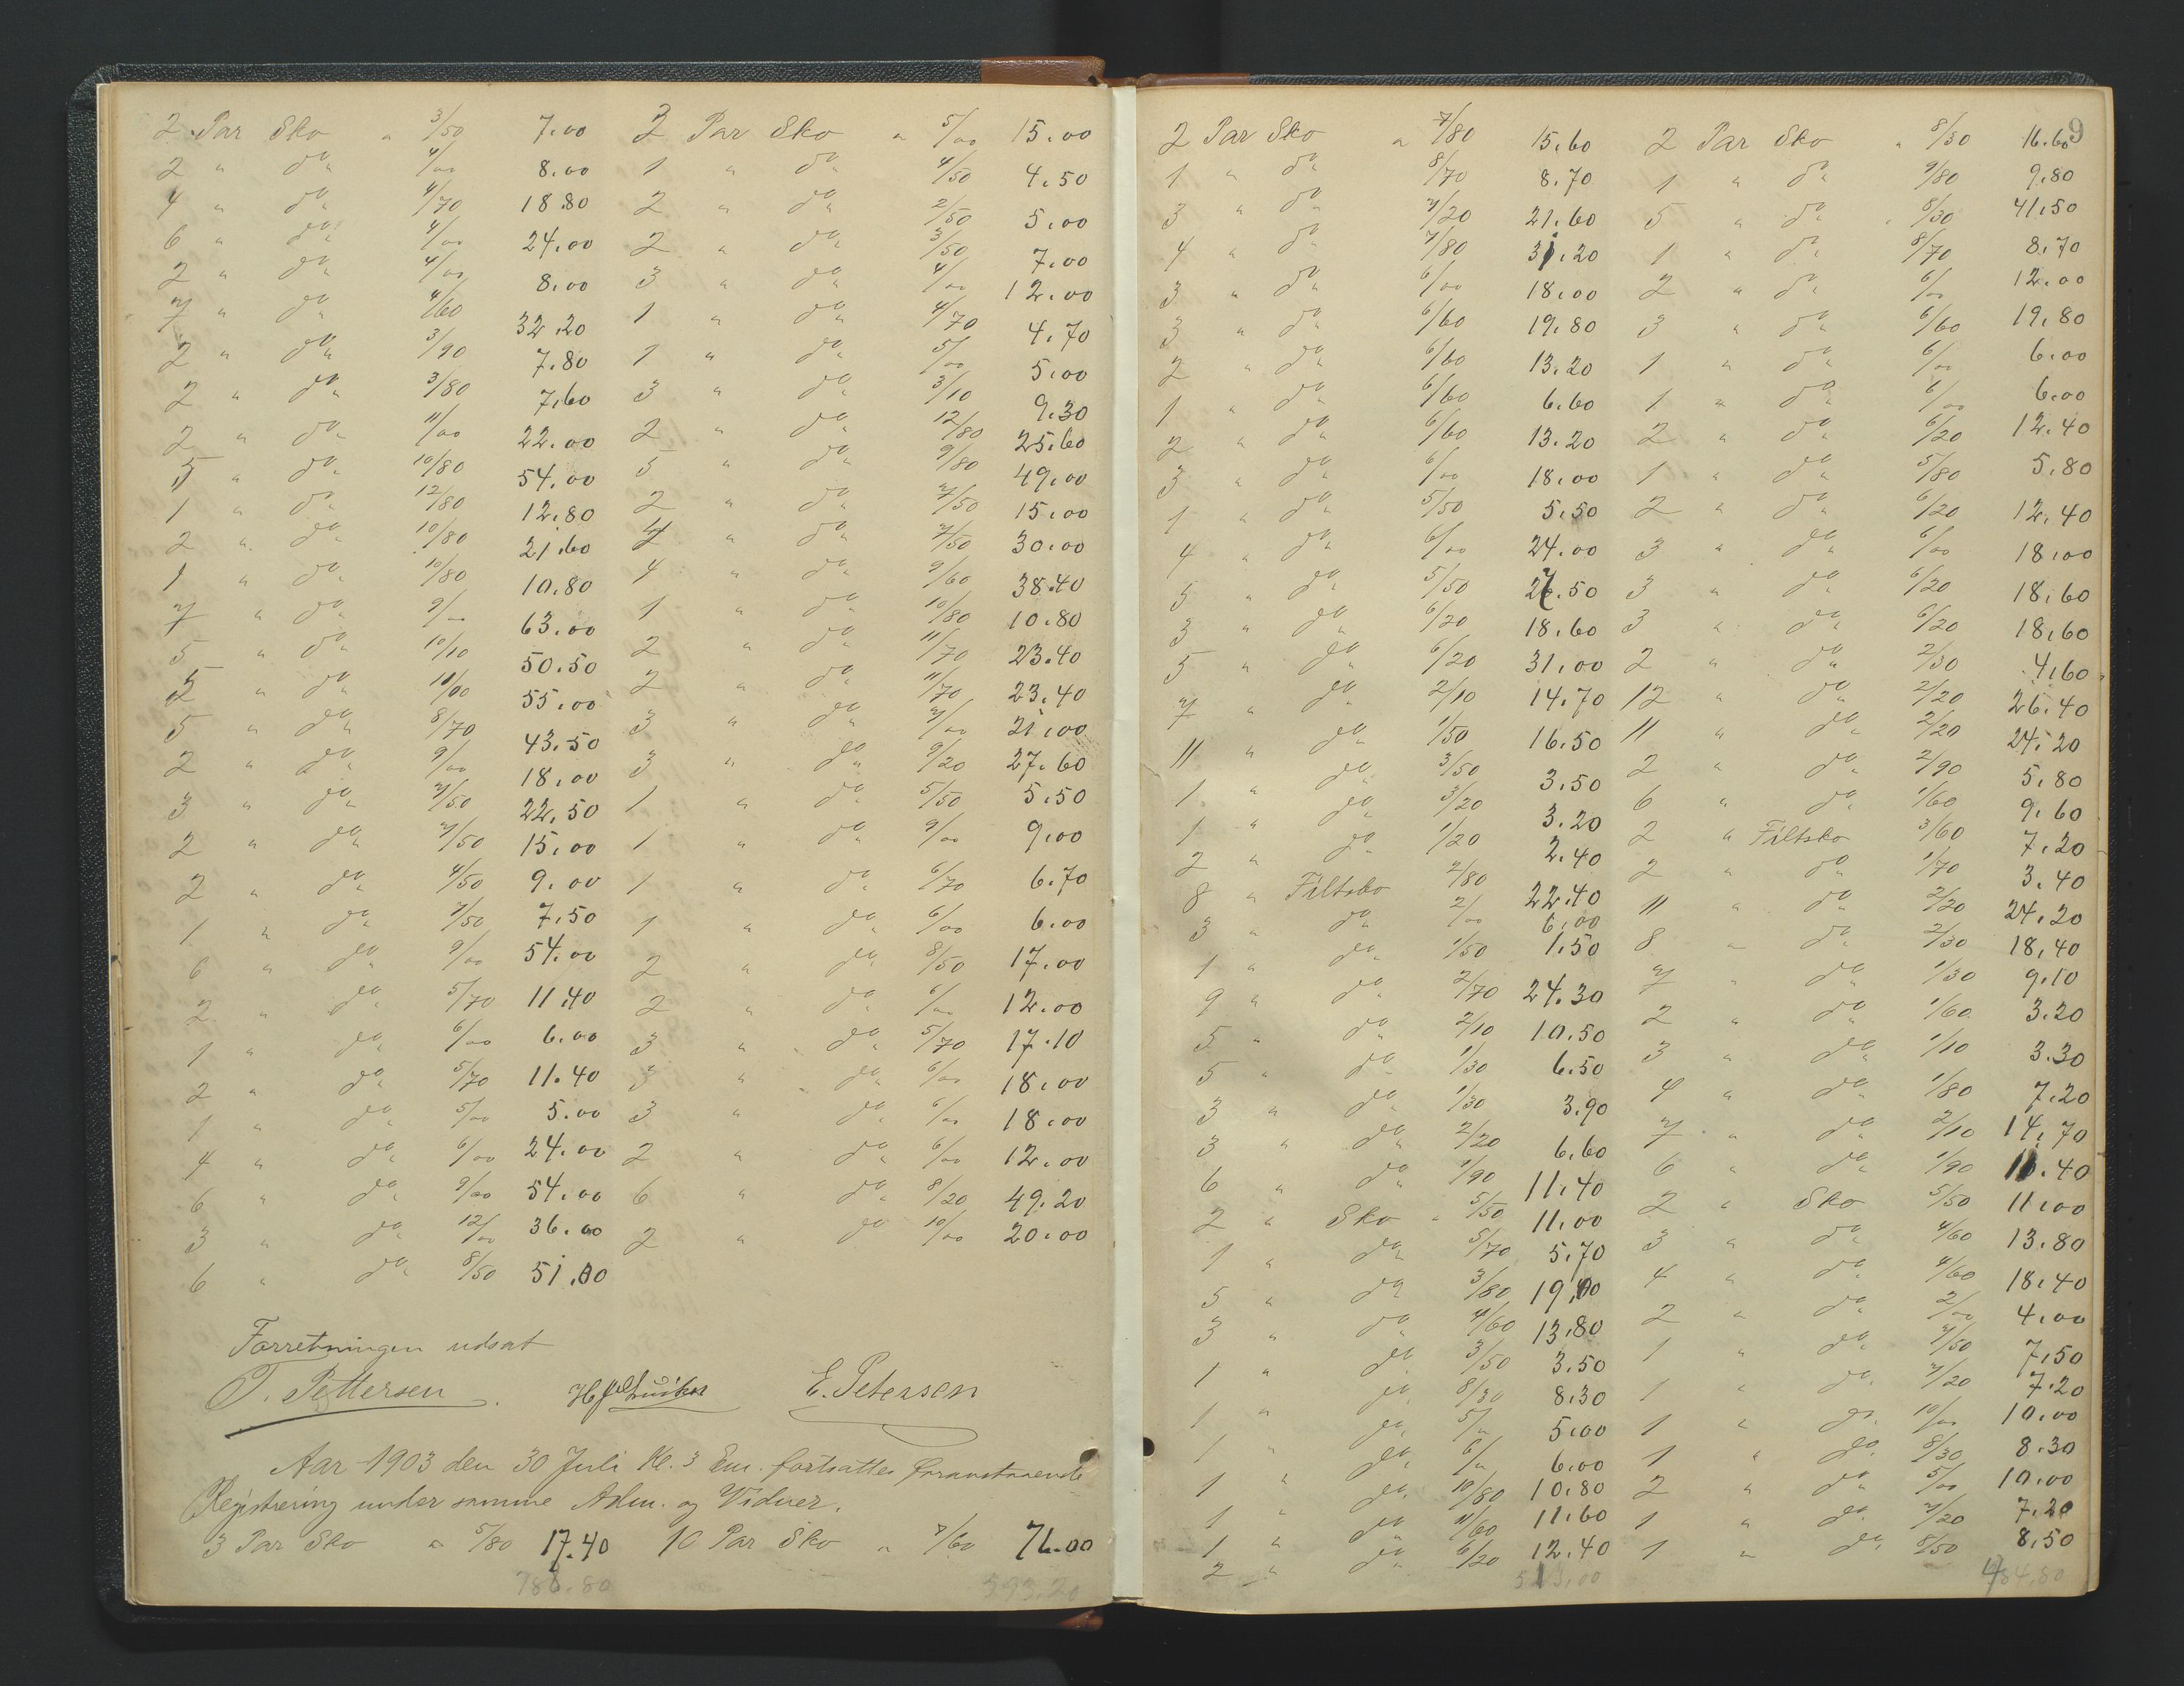 2 Par Sko " 3/50 7.00
2 " do 4/00 8.00
4 " do 4/70 18.80
6 " do 4/00 24.00
2 " do 4/00 8.00
7 " do 4/60 32.20
2 " do 3/90 7.80
2 " do 3/80 7.60
2 " do 11/00 22.00
5 " do 10/80 54.00
1 " do 12/80 12.80
2 " do 10/80 21.60
1 " do 10/80 10.80
7 " do 9/00 63.00
5 " do 10/10 50.50
5 " do 11/00 55.00
5 " do 8/70 43.50
2 " do 9/00 18.00
3 " do 7/50 22.50
2 " do 7/50 15.00
2 " do 4/50 9.00
1 " do 7/50 7.50
6 " do 9/00 54.00
2 " do 5/70 11.40
1 " do 6/00 6.00
2 " do 5/70 11.40
1 " do 5/00 5.00
4 " do 6/00 24.00
6 " do 9/00 54.00
3 " do 12/00 36.00
6 " do 8/50 51.00
3 Par Sko " 5/00 15.00
1 " do 4/50 4.50
2 " do 2/50 5.00
2 " do 3/50 7.00
3 " do 4/00 12.00
1 " do 4/70 4.70
1 " do 5/00 5.00
3 " do 3/10 9.30
2 " do 12/80 25.60
5 " do 9/80 49.00
2 " do 7/50 15.00
4 " do 7/50 30.00
4 " do 9/60 38.40
1 " do 10/80 10.80
2 " do 11/70 23.40
2 " do 11/70 23.40
3 " do 7/00 21.00
3 " do 9/20 27.60
1 " do 5/50 5.50
1 " do 9/00 9.00
1 " do 6/70 6.70
1 " do 6/00 6.00
2 " do 8/50 17.00
2 " do 6/00 12.00
3 " do 5/70 17.10
3 " do 6/00 18.00
3 " do 6/00 18.00
2 " do 6/00 12.00
6 " do 8/20 49.20
2 " do 10/00 20.00
Forretningen udsat
T. Pettersen E. Petersen
Aar 1903 den 30 Juli Kl. 3 Em. fortsattes foranstaaende
Registrering under samme Adm. og Vidner.
3 Par Sko " 5/80 17.40 10 Par Sko " 7/60 76.00
788.80 593.20
9
2 Par Sko " 7/80 15.60
1 " do 8/70 8.70
3 " do 7/20 21.60
4 " do 7/80 31.20
3 " do 6/00 18.00
3 " do 6/60 19.80
2 " do 6/60 13.20
1 " do 6/60 6.60
2 " do 6/60 13.20
3 " do 6/00 18.00
1 " do 5/50 5.50
4 " do 6/00 24.00
5 " do 5/50 27.50
3 " do 6/20 18.60
5 " do 6/20 31.00
7 " do 2/10 14.70
11 " do 1/50 16.50
1 " do 3/50 3.50
1 " do 3/20 3.20
2 " do 1/20 2.40
8 " Filtsko 2/80 22.40
3 " do 2/00 6.00
1 " do 1/50 1.50
9 " do 2/70 24.30
5 " do 2/10 10.50
5 " do 1/30 6.50
3 " do 1/30 3.90
3 " do 2/20 6.60
6 " do 1/90 11.40
2 " Sko " 5/50 11.00
1 " do 5/70 5.70
5 " do 3/80 19.00
3 " do 4/60 13.80
1 " do 3/50 3.50
1 " do 8/30 8.30
1 " do 5/" 5.00
1 " do 6/" 6.00
1 " do 10/80 10.80
1 " do 11/60 11.60
2 " do 6/20 12.40
513.00
2 Par Sko " 8/30 16.60
1 " do 9/80 9.80
5 " do 8/30 41.50
1 " do 8/70 8.70
2 " do 6/00 12.00
3 " do 6/60 19.80
1 " do 6/00 6.00
1 " do 6/00 6.00
2 " do 6/20 12.40
1 " do 5/80 5.80
2 " do 6/20 12.40
3 " do 6/00 18.00
3 " do 6/20 18.60
3 " do 6/20 18.60
2 " do 2/30 4.60
12 " do 2/20 26.40
11 " do 2/20 24.20
2 " do 2/90 5.80
6 " do 1/60 9.60
2 " Filtsko 3/60 7.20
2 " do 1/70 3.40
11 " do 2/20 24.20
8 " do 2/30 18.40
7 " do 1/30 9.10
2 " do 1/60 3.20
3 " do 1/10 3.30
4 " do 1/80 7.20
7 " do 2/10 14.70
6 " do 1/90 11.40
2 " Sko 5/50 11.00
3 " do 4/60 13.80
4 " do 4/60 18.40
2 " do 2/00 4.00
1 " do 7/50 7.50
1 " do 7/20 7.20
1 " do 10/00 10.00
1 " do 8/30 8.30
2 " do 5/00 10.00
1 " do 7/20 7.20
1 " do 8/50 8.50
484.80